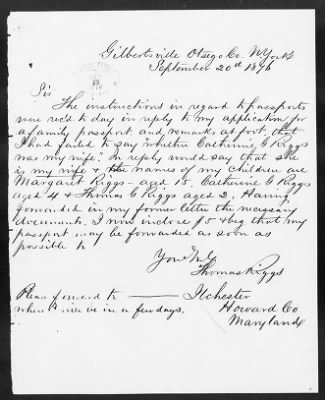 Gilbertsville Otsego Co. N York
September 20th 1896
Sir
The instructions in regard to passports
were rec'd to day in reply to my application for
a family passport, and remarks at foot, that
I had failed to say "whether Catherine G Riggs
was my wife", In reply would say that she
is my wife & the names of my children are
Margaret Riggs - aged 15, Catherine G Riggs
aged 4 & Thomas C Riggs aged 2. Having
forwarded in my former letter the necessary
documents. I now inclose $5 & beg that my
passport may be forwarded as soon as
possible to
Thomas Riggs
Please forward to Ilchester
where I will be in a few days. Howard Co
Maryland